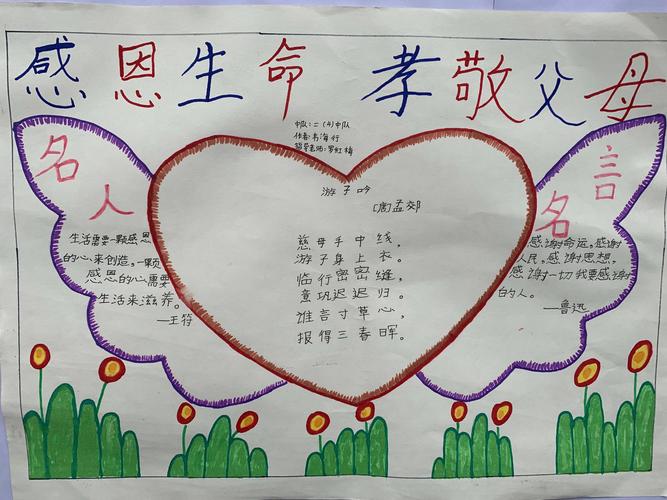 感恩生命 孝敬父母
中队:二(4)中队
作者:韦海行
指导老师:罗虹梅
名人
生活需要一颗感恩
的心来创造,一颗
感恩的心需要
生活来滋养。
—王符
游子吟
[唐]孟郊
慈母手中线,
游子身上衣。
临行密密缝,
意巩迟迟归。
谁言寸草心,
报得三春晖。
名言
感谢命远,感谢
人民,感谢思想,
感谢一切我要感谢
的人。
—鲁迅